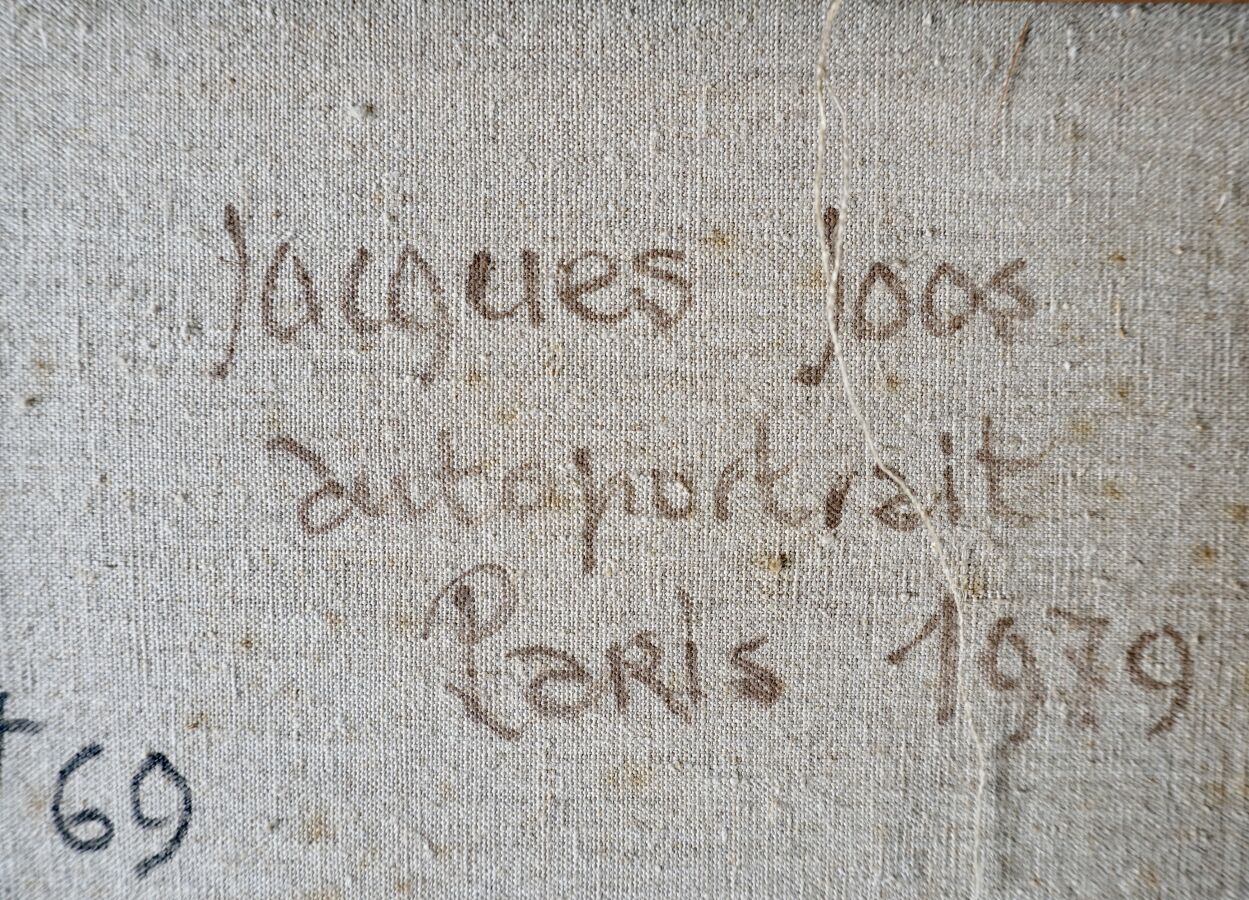 Jacques Joos
autoportrait
Paris 1979
69